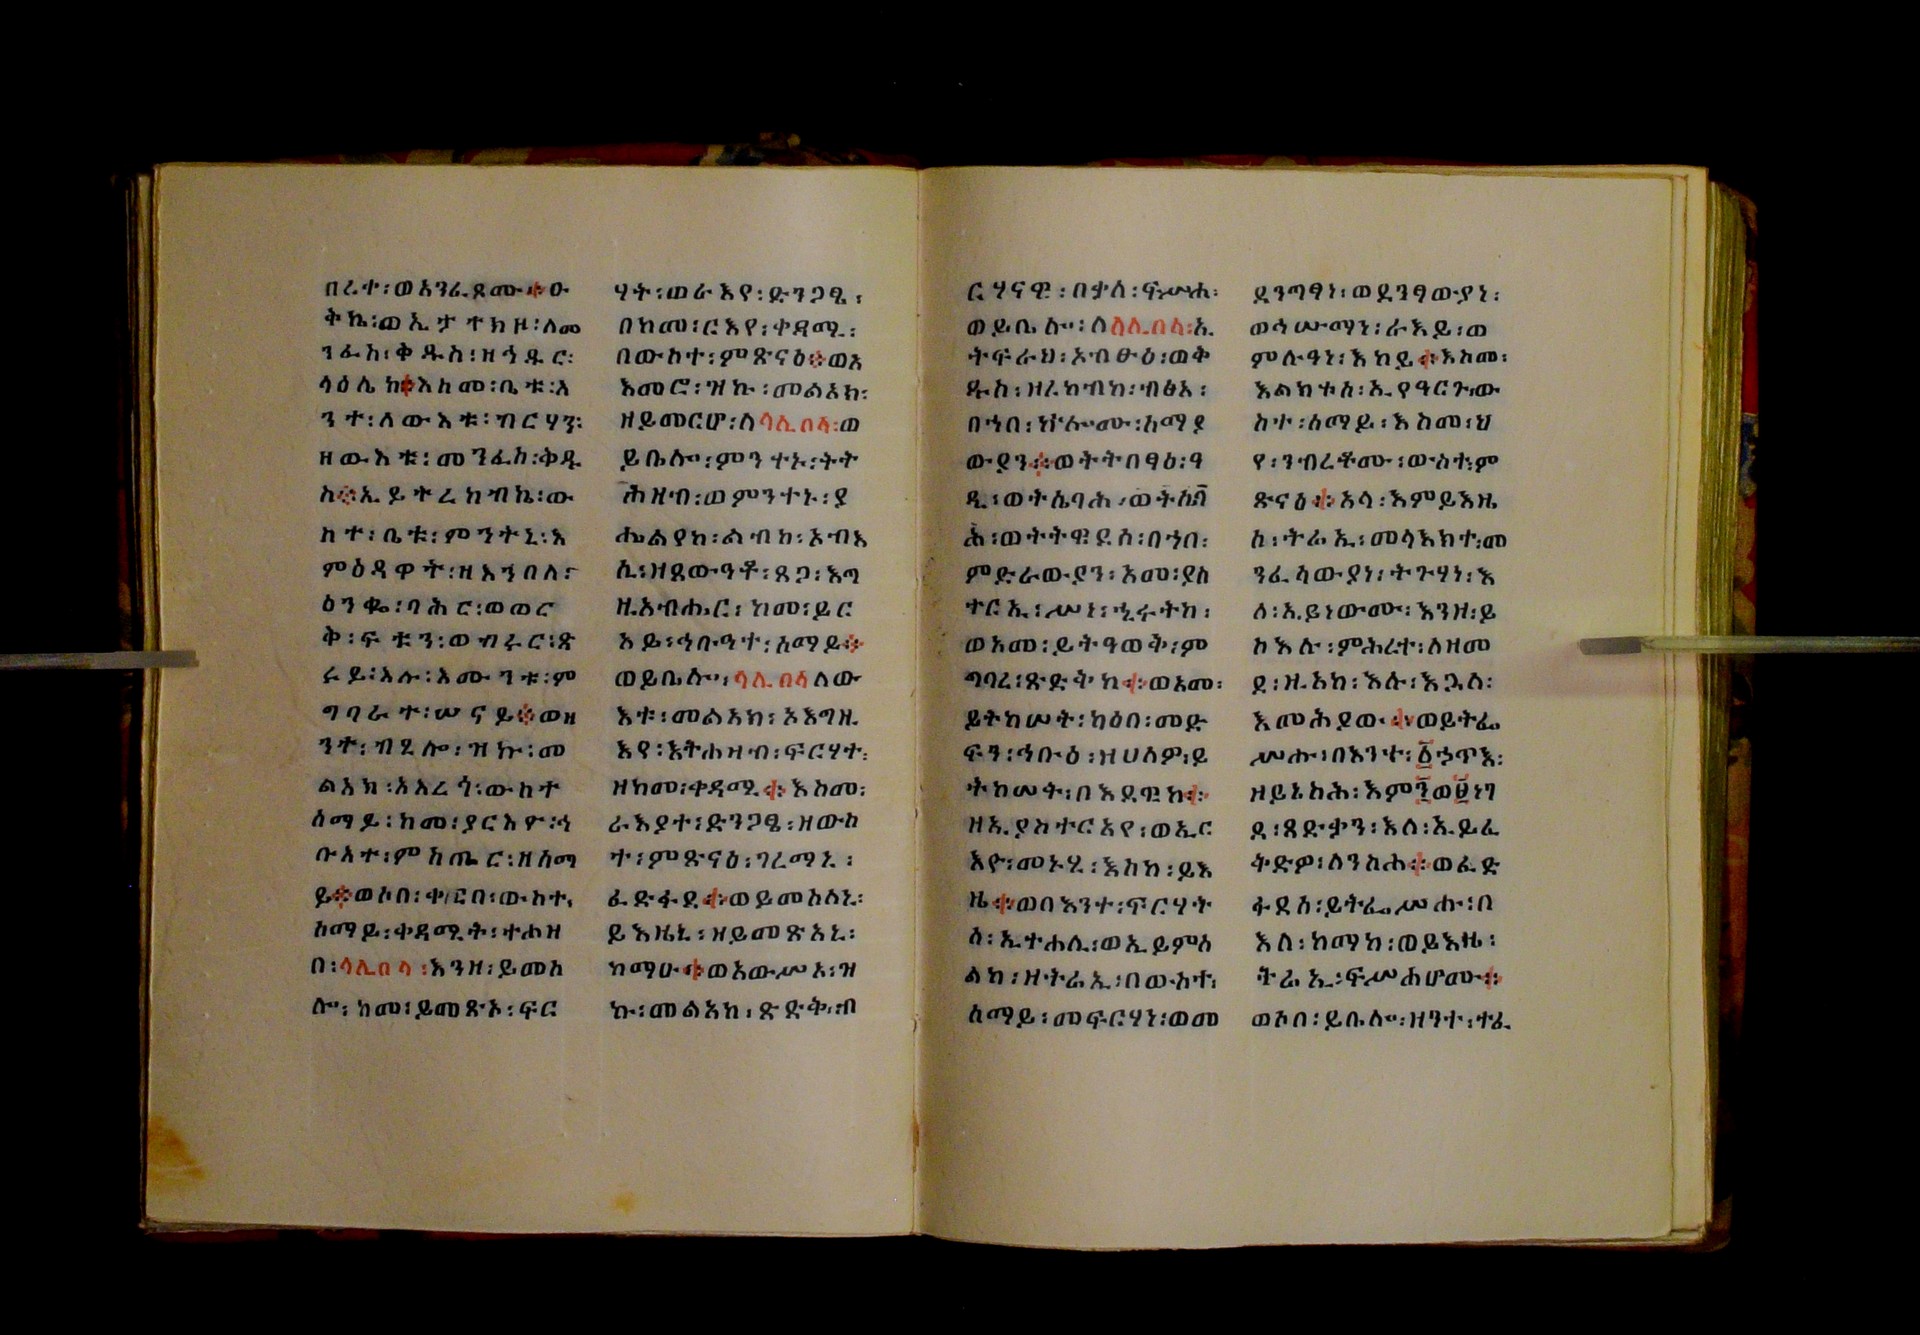 በረተ፡ወአንፈጾሙ፨ዑ
ቅኬ፡ወኢታተክዞ፡ለመ
ንፈስ፡ቅዱስ፡ዘኅዱር፡
ላዕሌከ፨እስመ፡ቤቱ፡አ
ንተ፡ለውእቱ፡ብርሃን፡
ዘውእቱ፡መንፈስ፡ቅዱ
ስ፨ኢይትረከብኬ፡ው
ስተ፡ቤቱ፡ምንትኒ፡እ
ምዕዳዋት፡ዘእንበለ፡
ዕንቈ፡ባሕር፡ወወር
ቅ፡ፍቱን፡ወብሩር፡ጽ
ሩይ፡እሉ፡እሙንቱ፡ም
ግባራት፡ሠናይ፨ወዘ
ንተ፡ብሂሎ፡ዝኩ፡መ
ልአክ፡አእረጎ፡ውስተ
ሰማይ፡ከመ፡ያርእዮ፡ኅ
ቡአተ፡ምስጢር፡ዘሰማ
ይ፨ወሶበ፡ቀርበ፡ውስተ፡
ሰማይ፡ቀዳሚት፡ተሐዘ
በ፡ላሊበላ፡እንዘ፡ይመስ
ሎ፡ከመ፡ይመጽኦ፡ፍር
ሃት፡ወራእየ፡ድንጋፄ፡
በከመ፡ርእየ፡ቀዳሚ፡
በውስተ፡ምጽናዕ፨ወአ
እመሮ፡ዝኩ፡መልአክ፡
ዘይመርሆ፡ለላሊበላ፡ወ
ይቤሎ፡ምንተኑ፡ትት
ሕዘብ፡ወምንተኑ፡ያ
ሔልየከ፡ልብከ፡ኦብእ
ሲ፡ዘደውዓቶ፡ጸጋ፡እግ
ዚአብሔር፡ከመ፡ይር
አይ፡ኅቡዓተ፡ሰማይ፨
ወይቤሎ፡ላሊበላለው
እቱ፡መልአክ፡ኦእግዚ
እየ፡እትሐዘብ፡ፍርሃተ፡
ዘከመ፡ቀዳሚ፨እስመ፡
ራእያተ፡ድንጋፄ፡ዘውስ
ተ፡ምጽናዕ፡ገረማኒ፡
ፈድፋደ፨ወይመስለኒ፡
ይእዜኒ፡ዘይመጽአኒ፡
ከማሁ፨ወአውሥአ፡ዝ
ኩ፡መልአክ፡ጽድቅ፡ብ
ርሃናዊ፡በቃለ፡ፍሥሐ፡
ወይቤሎ፡ለላሊበላ፡ኢ
ትፍራህ፡ኦብፁዕ፡ወቅ
ዱስ፡ዘረከብከ፡ብፅአ፡
በኀበ፡ኵሎሙ፡ሰማያ
ውያን፨ወትትበፃዕ፡ዓ
ዲ፡ወትሴባሕ፡ወትሰባ
ሕ፡ወትትዌደስ፡በኀበ፡
ምድራውያን፡አመ፡ያስ
ተርኢ፡ሥነ፡ኂሩትከ፡
ወአመ፡ይትዓወቅ፡ም
ግባረ፡ጽድቅከ፨ወአመ፡
ይትከሠት፡ከዕበ፡መድ
ፍን፡ኅቡዕ፡ዘሀለዎ፡ይ
ትከሠት፡በእደዊከ፨
ዘኢያስተርአየ፡ወኢር
እዮ፡መኑሂ፡እስከ፡ይእ
ዜ፨ወበእንተ፡ፍርሃት
ሰ፡ኢተሐሊ፡ወኢይምሰ
ልከ፡ዘትሬኢ፡በውስተ፡
ሰማይ፡መፍርሃነ፡ወመ
ደንግፃነ፡ወደንፃውያነ፡
ወኅሡማነ፡ራእይ፡ወ
ምሉዓነ፡እከይ፨እስመ፡
እልክቱሰ፡ኢየዓርጉ፡ው
ስተ፡ሰማይ፡እስመ፡ህ
የ፡ንብረቶሙ፡ውስተ፡ም
ጽናዕ፨አላ፡እምይእዜ
ሰ፡ትሬኢ፡መላእክተ፡መ
ንፈሳውያነ፡ትጉሃነ፡እ
ለ፡ኢይነውሙ፡እንዘ፡ይ
ስእሉ፡ምሕረተ፡ለዘመ
ደ፡ዚአከ፡እሉ፡እጓለ፡
እመሕያው፨ወይትፌ
ሥሑ፡በእንተ፡፩ኃጥእ፡
ዘይኔስሕ፡እም፺ወ፱ነገ
ደ፡ጻድቃን፡እለ፡ኢይፈ
ትድዎ፡ለንስሐ፨ወፈድ
ፋደሰ፡ይትፌሥሑ፡በ
እለ፡ከማከ፡ወይእዜ፡
ትሬኢ፡ፍሥሐሆሙ፨
ወሶበ፡ይቤሎ፡ዘንተ፡ተፈ